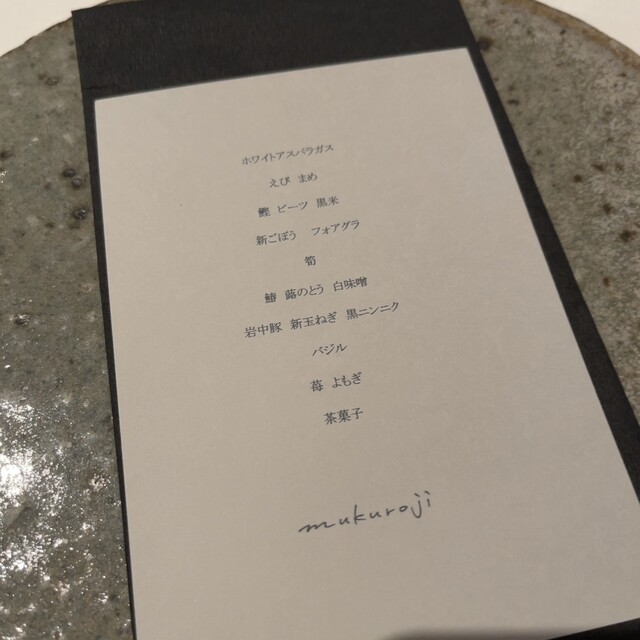 ホワイトアスパラガス
えび まめ
鰹 ビーツ 黒米
新ごぼう フォアグラ
筍
鰆 蕗のとう 白味噌
岩中豚 新玉ねぎ 黒ニンニク
バジル
苺 よもぎ
茶菓子
mukuroji